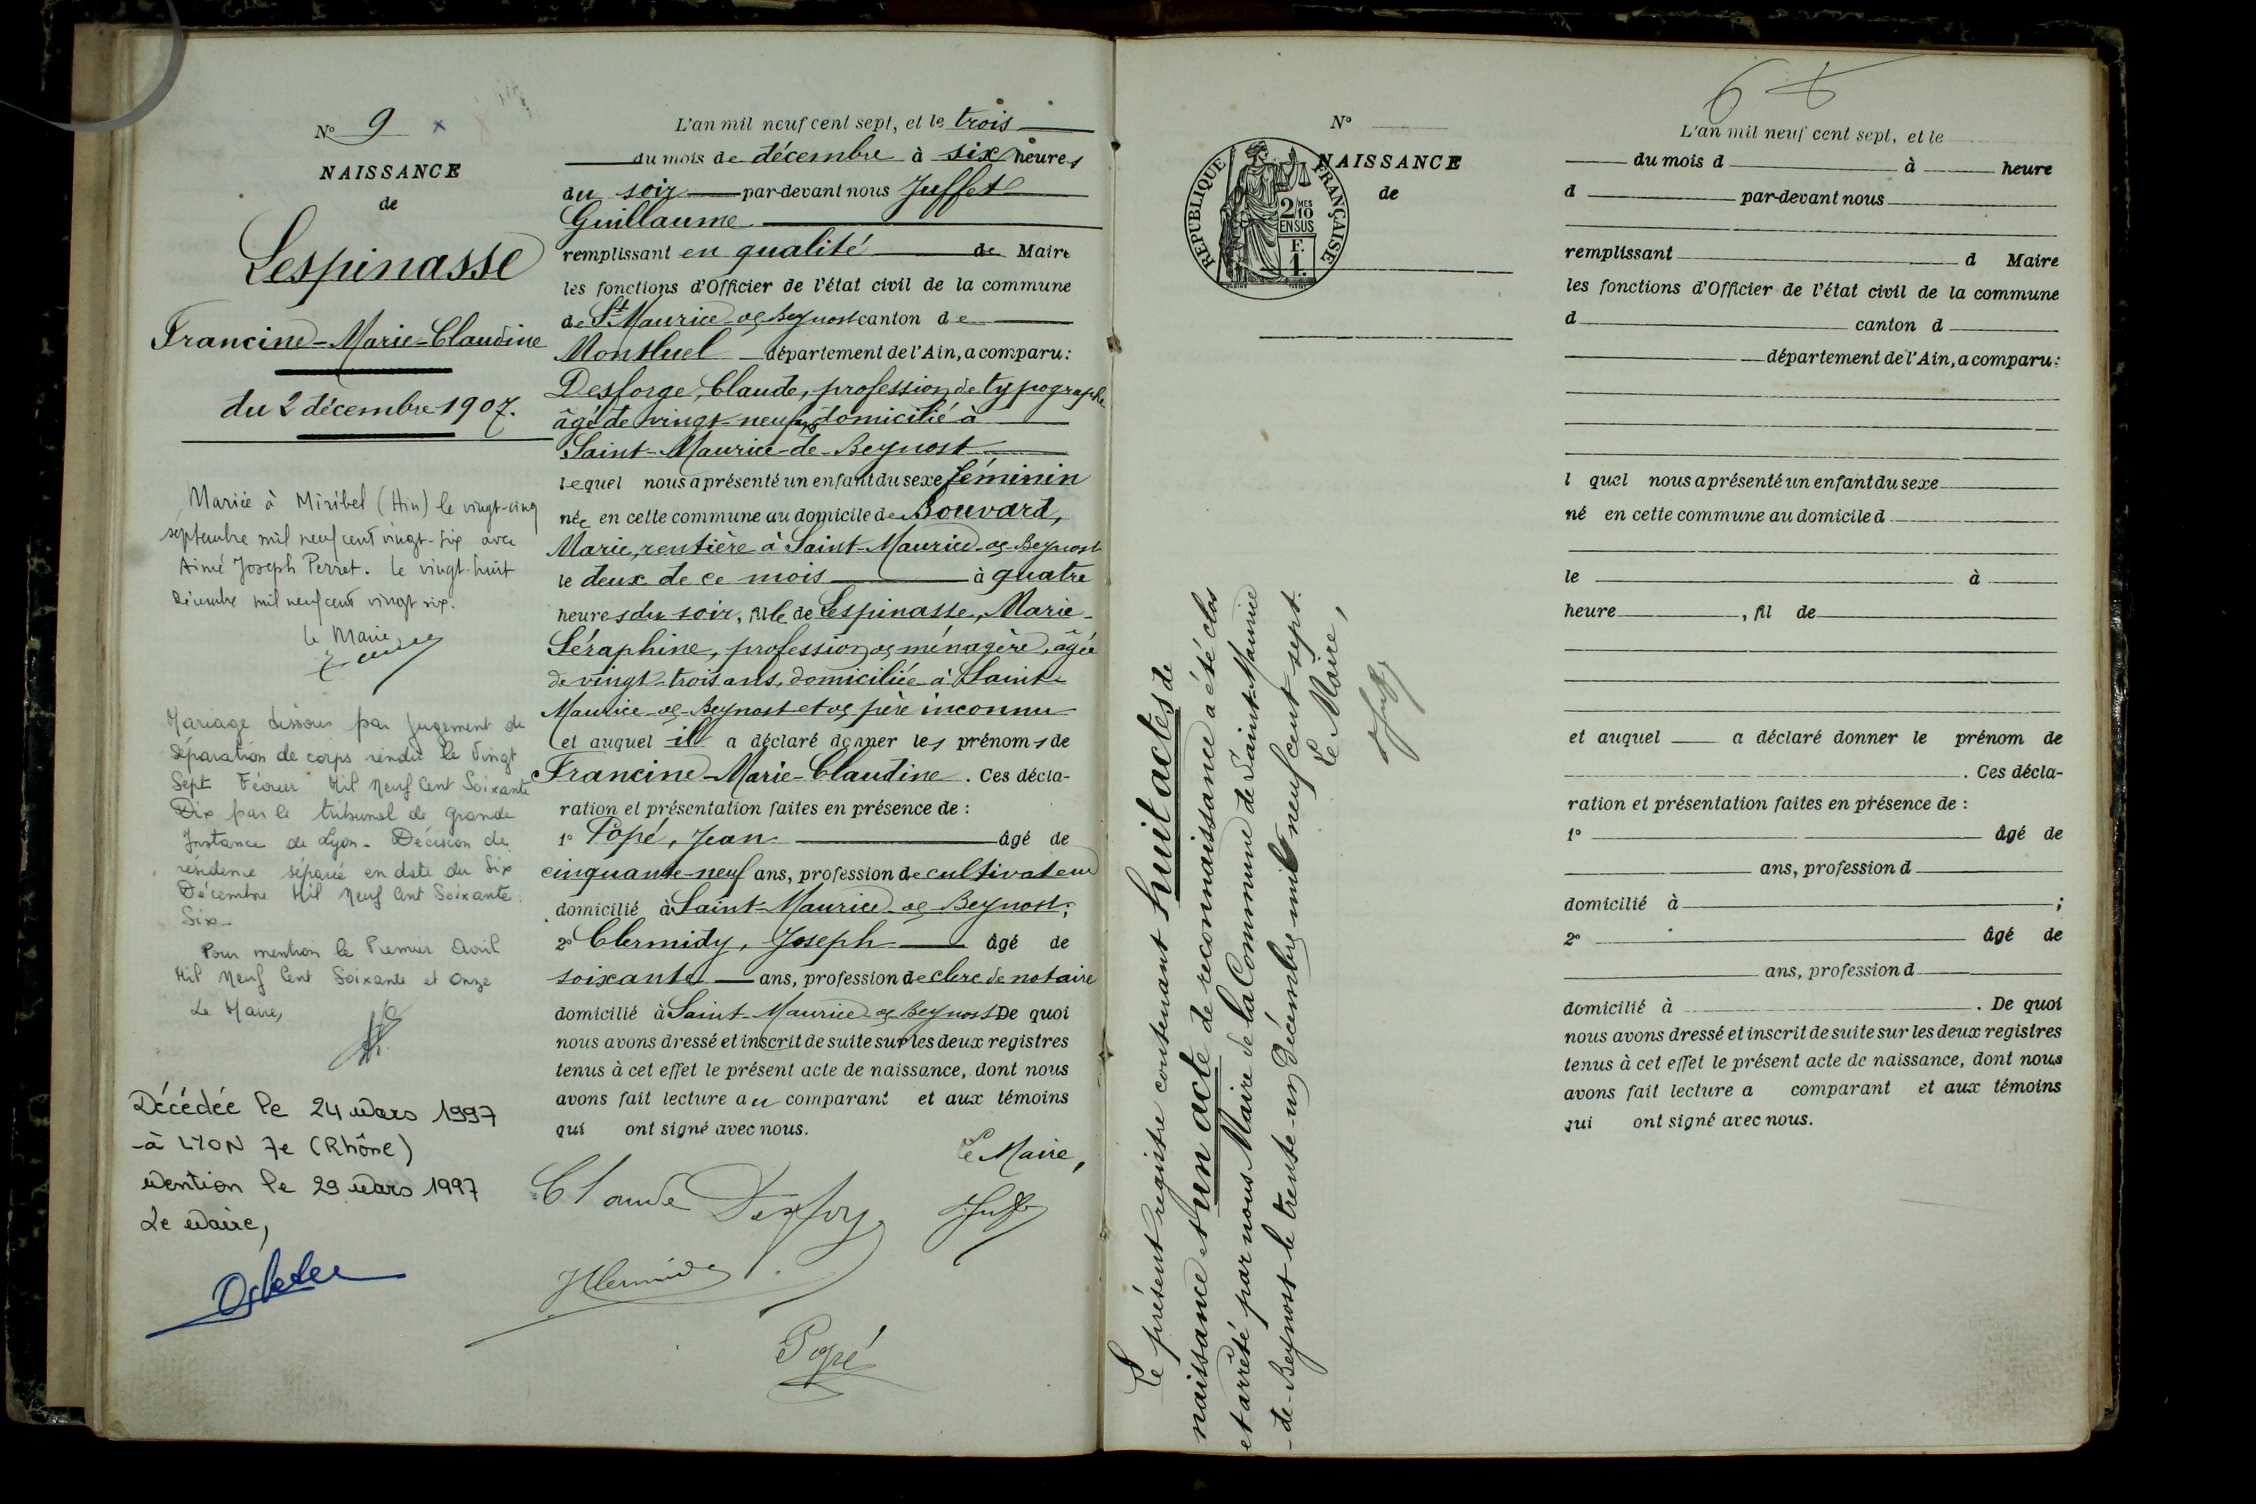 N° 9
NAISSANCE
de
Lespinasse
Francine-Marie-Claudine
du 2 décembre 1907.
Mariée à Miribel (Ain) le vingt-cinq
septembre mil neuf cent vingt-six avec
Aimé Joseph Perret. Le vingt-huit
décembre mil neuf cent vingt six.
Le Maire
Mariage dissous par jugement de
Séparation de corps rendu le Vingt
Sept Février Mil Neuf Cent Soixante
Dix par le tribunal de Grande
Instance de Lyon - Décision de
résidence séparée en date du Six
Décembre Mil Neuf Cent Soixante
Six-
Pour mention le Premier Avril
Mil Neuf Cent Soixante et Onze
Le Maire,
Décédée le 24 Mars 1997
-à LYON 7e (Rhône)
Mention le 29 Mars 1997
Le Maire,
L'an mil neuf cent sept, et le trois
du mois de décembre à six heures
du soir par-devant nous Juffet
Guillaume
remplissant en qualité de Maire
les fonctions d'Officier de l'état civil de la commune
de St Maurice de Beynost canton de
Montluel département de l'Ain, a comparu:
Desforge, Claude, profession de typographe
âgé de vingt-neuf ans domicilié à
Saint-Maurice-de-Beynost
lequel nous a présenté un enfant du sexe féminin
née en cette commune au domicile de Bouvard,
Marie, rentière à Saint-Maurice de Beynost
le deux de ce mois à quatre
heures du soir, fille de Lespinasse, Marie-
Séraphine, profession de ménagère, âgée
de vingt-trois ans, domiciliée à Saint-
Maurice-de-Beynost et de père inconnu
et auquel il a déclaré donner les prénoms de
Francine-Marie-Claudine. Ces décla-
ration et présentation faites en présence de :
1° Popé, Jean âgé de
cinquante-neuf ans, profession de cultivateur
domicilié à Saint-Maurice de Beynost;
2° Clermidy, Joseph âgé de
soixante ans, profession de clerc de notaire
domicilié à Saint-Maurice de Beynost De quoi
nous avons dressé et inscrit de suite sur les deux registres
tenus à cet effet le présent acte de naissance, dont nous
avons fait lecture au comparant et aux témoins
qui ont signé avec nous.
Le Maire,
Claude Desforge
Popé
Le présent registre contenant huit actes de
naissance et un acte de reconnaissance a été clos
et arrêté par nous Maire de la Commune de Saint-Maurice
-de-Beynost le trente-un Décembre mil neuf cent sept.
Le Maire,
N°
NAISSANCE
de
RÉPUBLIQUE FRANÇAISE
2/10
MES
EN SUS
F.
1.
L'an mil neuf cent sept, et le
du mois d à heure
d par-devant nous
remplissant d Maire
les fonctions d'Officier de l'état civil de la commune
d canton d
département de l'Ain, a comparu:
l quel nous a présenté un enfant du sexe
né en cette commune au domicile d
le à
heure , fil de
et auquel a déclaré donner le prénom de
. Ces décla-
ration et présentation faites en présence de :
1° âgé de
ans, profession d
domicilié à ;
2° âgé de
ans, profession d
domicilié à . De quoi
nous avons dressé et inscrit de suite sur les deux registres
tenus à cet effet le présent acte de naissance, dont nous
avons fait lecture a comparant et aux témoins
qui ont signé avec nous.